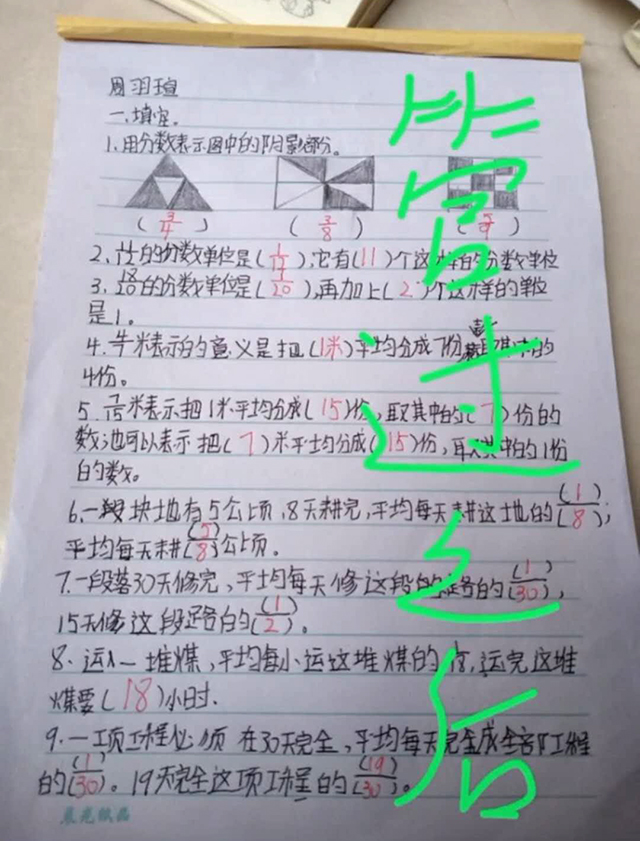 周羽瑄
一、填空。
1、用分数表示图中的阴影部分。
(3/4) (3/8) (5/9)
2、的分数单位是(1/12),它有(11)个这样的分数单位
3、的分数单位是(1/20),再加上(2)个这样的单位
是1。
4、米表示的意义是把(1米)平均分成7份,取其中的
4份。
5、7/15米表示把1米平均分成(15)份,取其中的(7)份的
数,也可以表示把(7)米平均分成(15)份,取其中的1份
的数。
6、一块地有5公顷,8天耕完,平均每天耕这地的(1)/(8);
平均每天耕(5)/(8)公顷。
7、一段路30天修完,平均每天修这段的路的(1)/(30),
15天修这段路的(1)/(2)。
8、运一堆煤,平均每小运这堆煤的1/18,运完这堆
煤要(18)小时.
9、一项工程必须在30天完全,平均每天完全成全部工程
的(1)/(30)。19天完全这项工程的(19)/(30)。
晨光纸品
营过之后